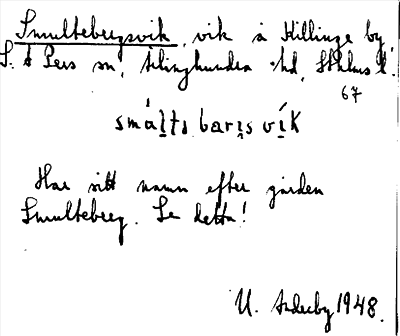 Smultebergsvik, vik å Hillinge by
S:t Pers sn, Ärlinghundra hd, Sthlms l.
67
smál̥tə barı̥s vı̥́k
Har sitt namn efter gården
Smulteberg. Se detta!
U. 1948.